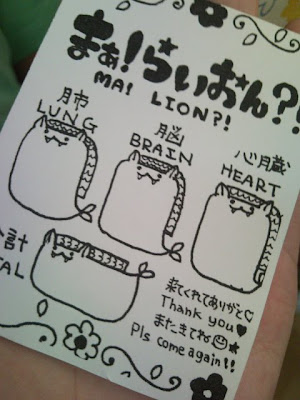 まぁ!らいおん?!
MA! LION?!
肺
LUNG
脳
BRAIN
心臓
HEART
計
TAL
来てくれてありがと♡
Thank you♥
またきてね☺★
Pls come again!!